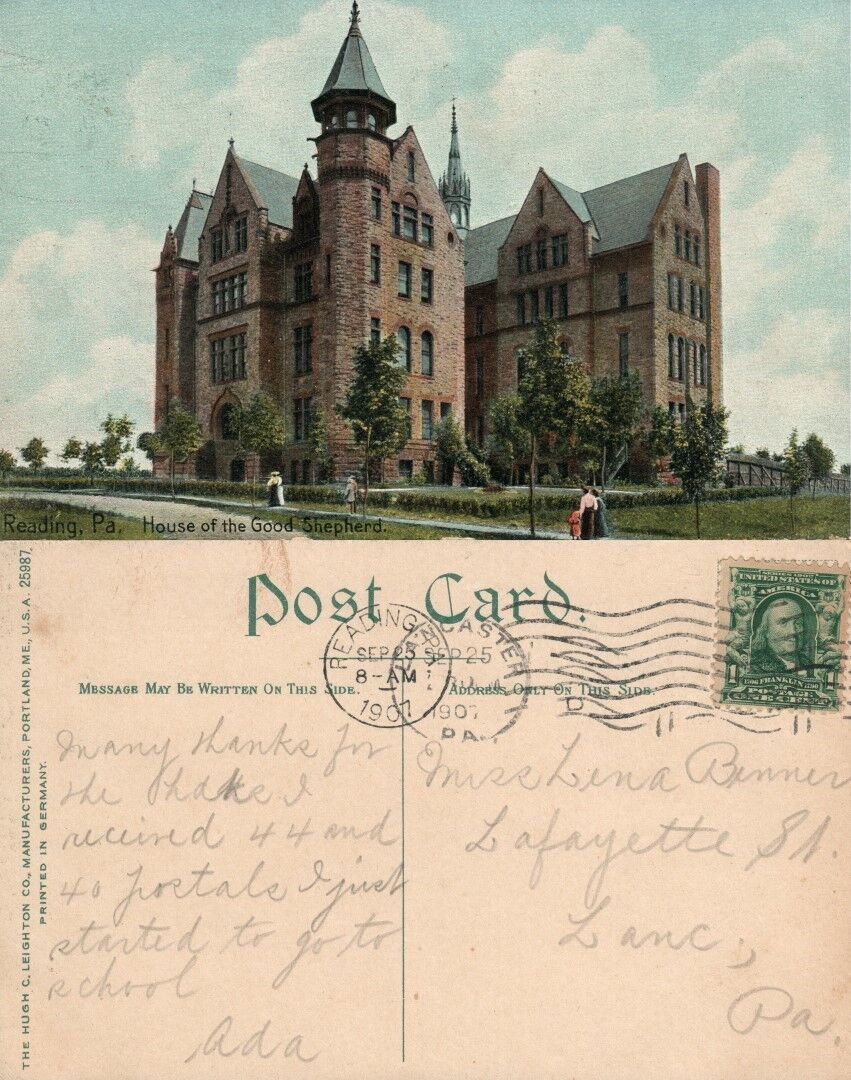 Reading, Pa. House of the Good Shepherd.
THE HUGH C. LEIGHTON CO., MANUFACTURERS, PORTLAND, ME., U.S.A. 25987.
PRINTED IN GERMANY.
Post Card.
READING, PA.
SEP 25
8-AM
1907
LANCASTER
SEP 25
1907
PA.
D
SERIES 1902
UNITED STATES OF
AMERICA
1 1
1706 FRANKLIN 1790
POSTAGE
ONE CENT
MESSAGE MAY BE WRITTEN ON THIS SIDE.
ADDRESS ONLY ON THIS SIDE.
Many thanks for
the I
received 44 and
40 postals I just
started to go to
school
Ada
Miss Lena Benner
Lafayette St.
Lanc.,
Pa.